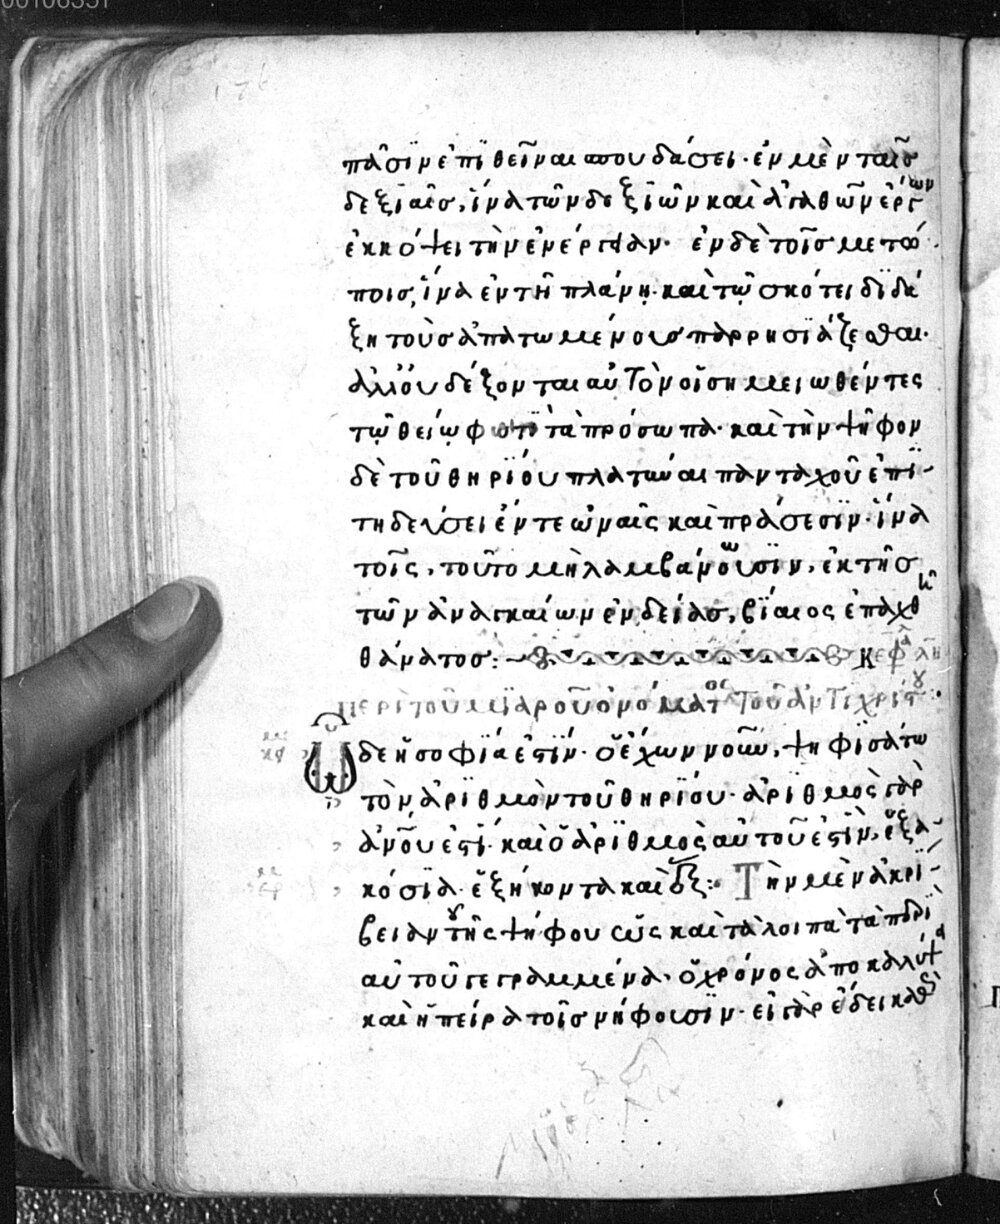 00106351
176
πᾶσιν ἐπιθεῖναι σπουδάσει· ἐν μὲν ταῖς
δεξιαῖς, ἵνα τῶν δεξιῶν καὶ ἀγαθῶν ἔργων
ἐκκόψει τὴν ἐνέργειαν· ἐν δὲ τοῖς μετώ
ποις, ἵνα ἐν τῇ πλάνῃ καὶ τῷ σκότει διδά
ξη τοὺς ἀπατωμένους παρρησιάζεσθαι·
ἀλλ' οὐ δέξονται αὐτὸν οἱ σημειωθέντες
τῷ θείῳ φωτὶ τὰ πρόσωπα· καὶ τὴν ψῆφον
δὲ τοῦ θηρίου πλατύναι πανταχοῦ ἐπι-
τηδεύσει ἔν τε ὠναῖς καὶ πράσεσιν· ἵνα
τοῖς τοῦτο μὴ λαμβάνουσιν, ἐκ τῆς
τῶν ἀναγκαίων ἐνδείας, βίαιος ἐπαχθῇ
θάνατος:
Κεφ λη
Περὶ τοῦ μιαροῦ ὀνόματος τοῦ ἀντιχρίστου:
Ὧδε ἡ σοφία ἐστίν· ὁ ἔχων νοῦν, ψηφισάτω
τὸν ἀριθμὸν τοῦ θηρίου· ἀριθμὸς γὰρ
ἀνου ἐστί· καὶ ὁ ἀριθμὸς αὐτοῦ ἐστὶν, ἑξα-
κόσια ἑξήκοντα καὶ ἕξ: Τὴν μὲν ἀκρί-
βειαν τῆς ψήφου ὡς καὶ τὰ λοιπὰ τὰ περὶ
αὐτοῦ γεγραμμένα· ὁ χρόνος ἀποκαλύψει
καὶ ἡ πεῖρα τοῖς νήφουσιν· εἰ γὰρ ἔδει καθὼς